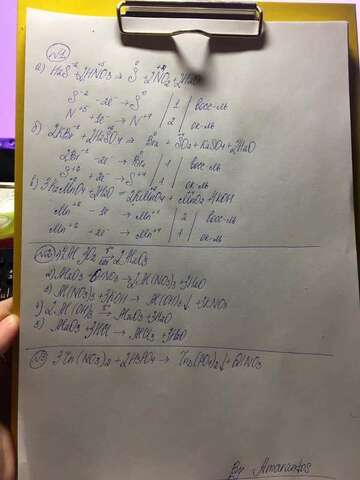 №1
а) H2S⁻² + 2HNO3 → S + 2NO2 + 2H2O
S⁻² - 2e⁻ → S⁰ | 1 | восс-ль
N⁺⁵ + 1e⁻ → N⁺⁴ | 2 | ок-ль
б) 2KBr⁻¹ + 2H2SO4 → Br2 + SO2 + K2SO4 + 2H2O
2Br⁻¹ - 2e⁻ → Br2 | 1 | восс-ль
+ 2e⁻ → S⁺⁴ | 1 | ок-ль
в) 3K2MnO4 + 2H2O → 2KMnO4 + MnO2 + 4KOH
Mn - 1e⁻ → | 2 | восс-ль
Mn + 2e⁻ → Mn⁺⁴ | 1 | ок-ль
№2
2) Al2O3 + 6HNO3 → 2Al(NO3)3 + 3H2O
3) Al(NO3)3 + 3KOH → Al(OH)3↓ + 3KNO3
4) 2Al(OH)3 → Al2O3 + 3H2O
5) Al2O3 + → AlCl3 + 3H2O
№3 3Zn(NO3)2 + 2H3PO4 → Zn3(PO4)2↓ + 6HNO3
By Amarantos